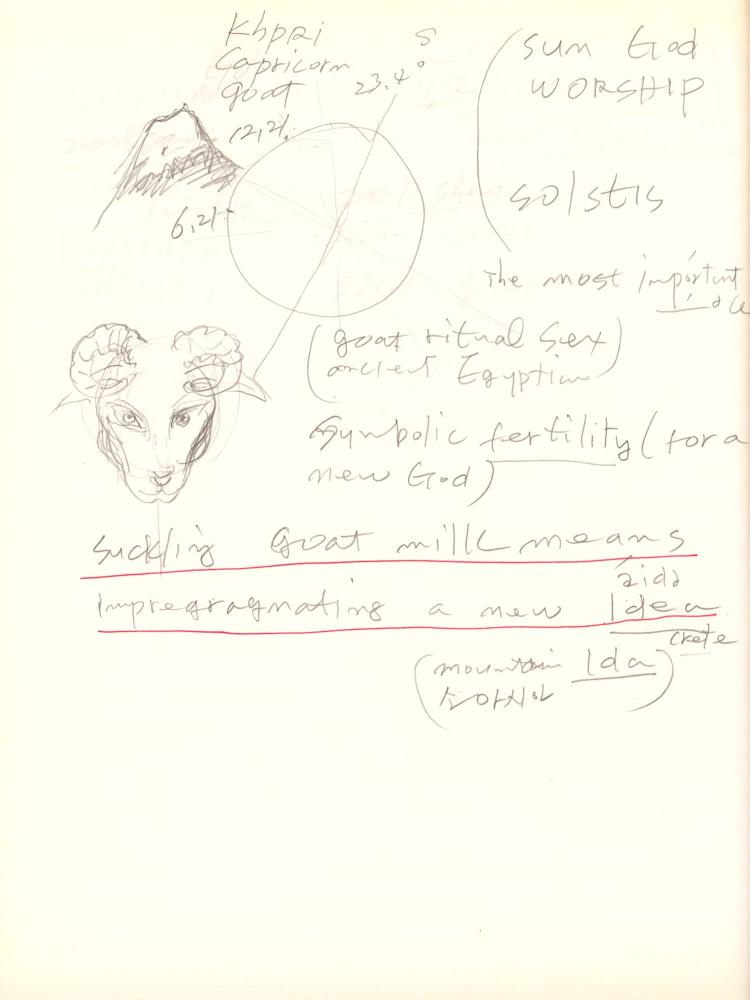 Khpri
Capricorn
goat
12,21.
23.4°
S
6,21-
sun God
WORSHIP
solstis
The most important
(goat ritual sex)
ancient Egyptian
symbolic fertility (for a
new God)
suckling Goat milk means
impregragnating a new Idea
áida
crete
(mountain Ida)
소아시아